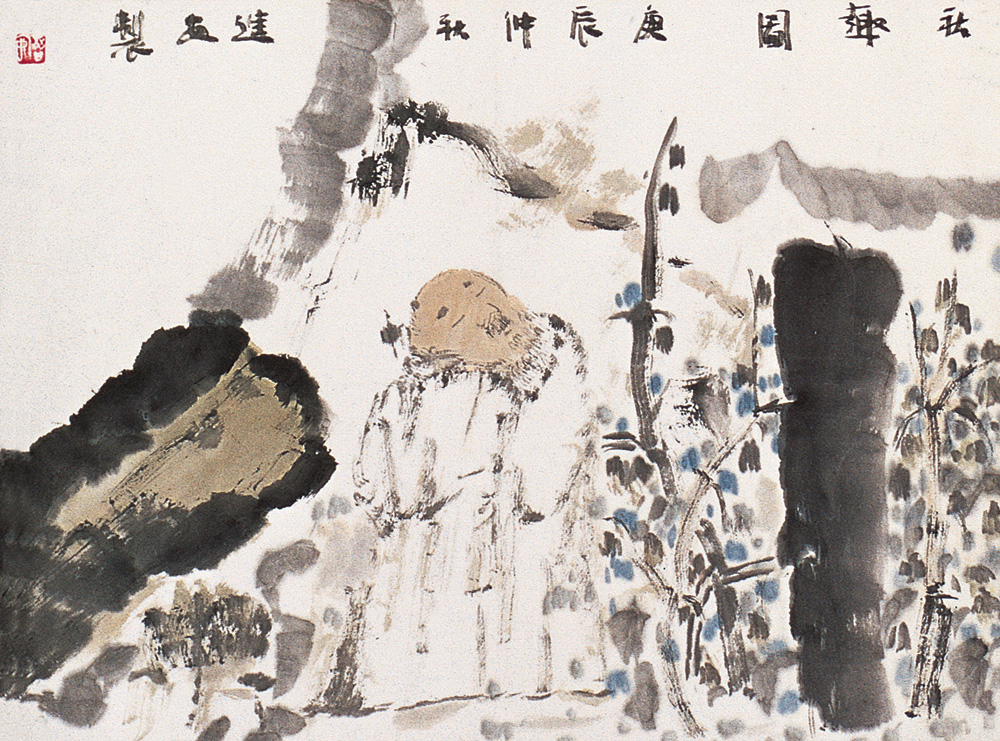 秋趣圖 庚辰仲秋 進安製